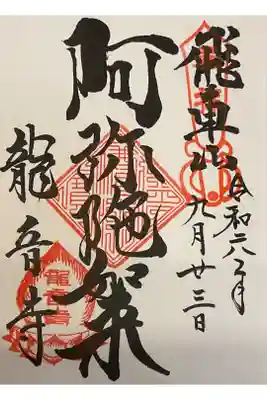 飛車山
令和六年
九月廿三日
阿弥陀如来
龍音寺
龍音寺